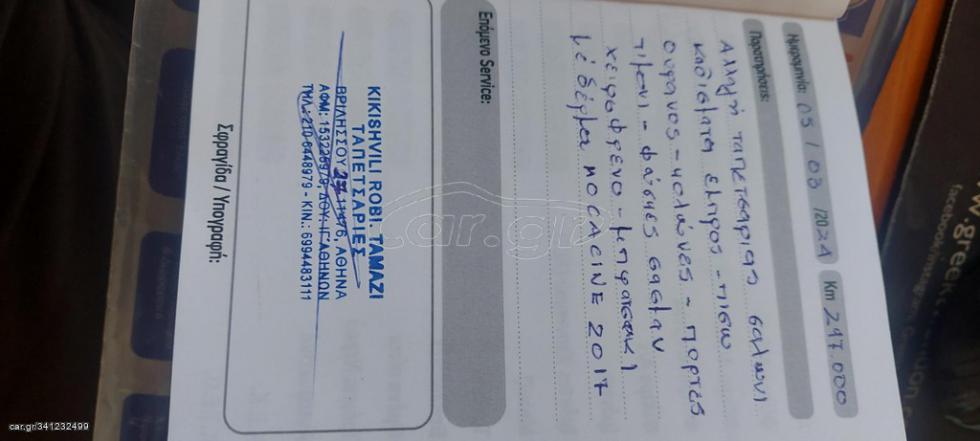 Ημερομηνία: 05 / 03 /2024 Km 247.000
Παρατηρήσεις:
Αλλαγή ταπετσαρίας σαλόνι
καθίσματα εμπρος - πισω
ουρανος - κολώνες - πορτες
τιμονι - φούσκες σασμαν
χειροφρενο -
με δέρμα MOCACINE 2017
Επόμενο Service:
KIKISHVILI ROBI. TAMAZI
ΤΑΠΕΤΣΑΡΙΕΣ
ΒΡΙΛΗΣΣΟΥ 27 11476, ΑΘΗΝΑ
ΑΦΜ: 153226979, ΔΟΥ: ΙΓ' ΑΘΗΝΩΝ
ΤΗΛ.: 210-6448979 - ΚΙΝ.: 6994483111
Σφραγίδα / Υπογραφή:
car.gr
w.greek
facebook/instagram
car.gr/341232499